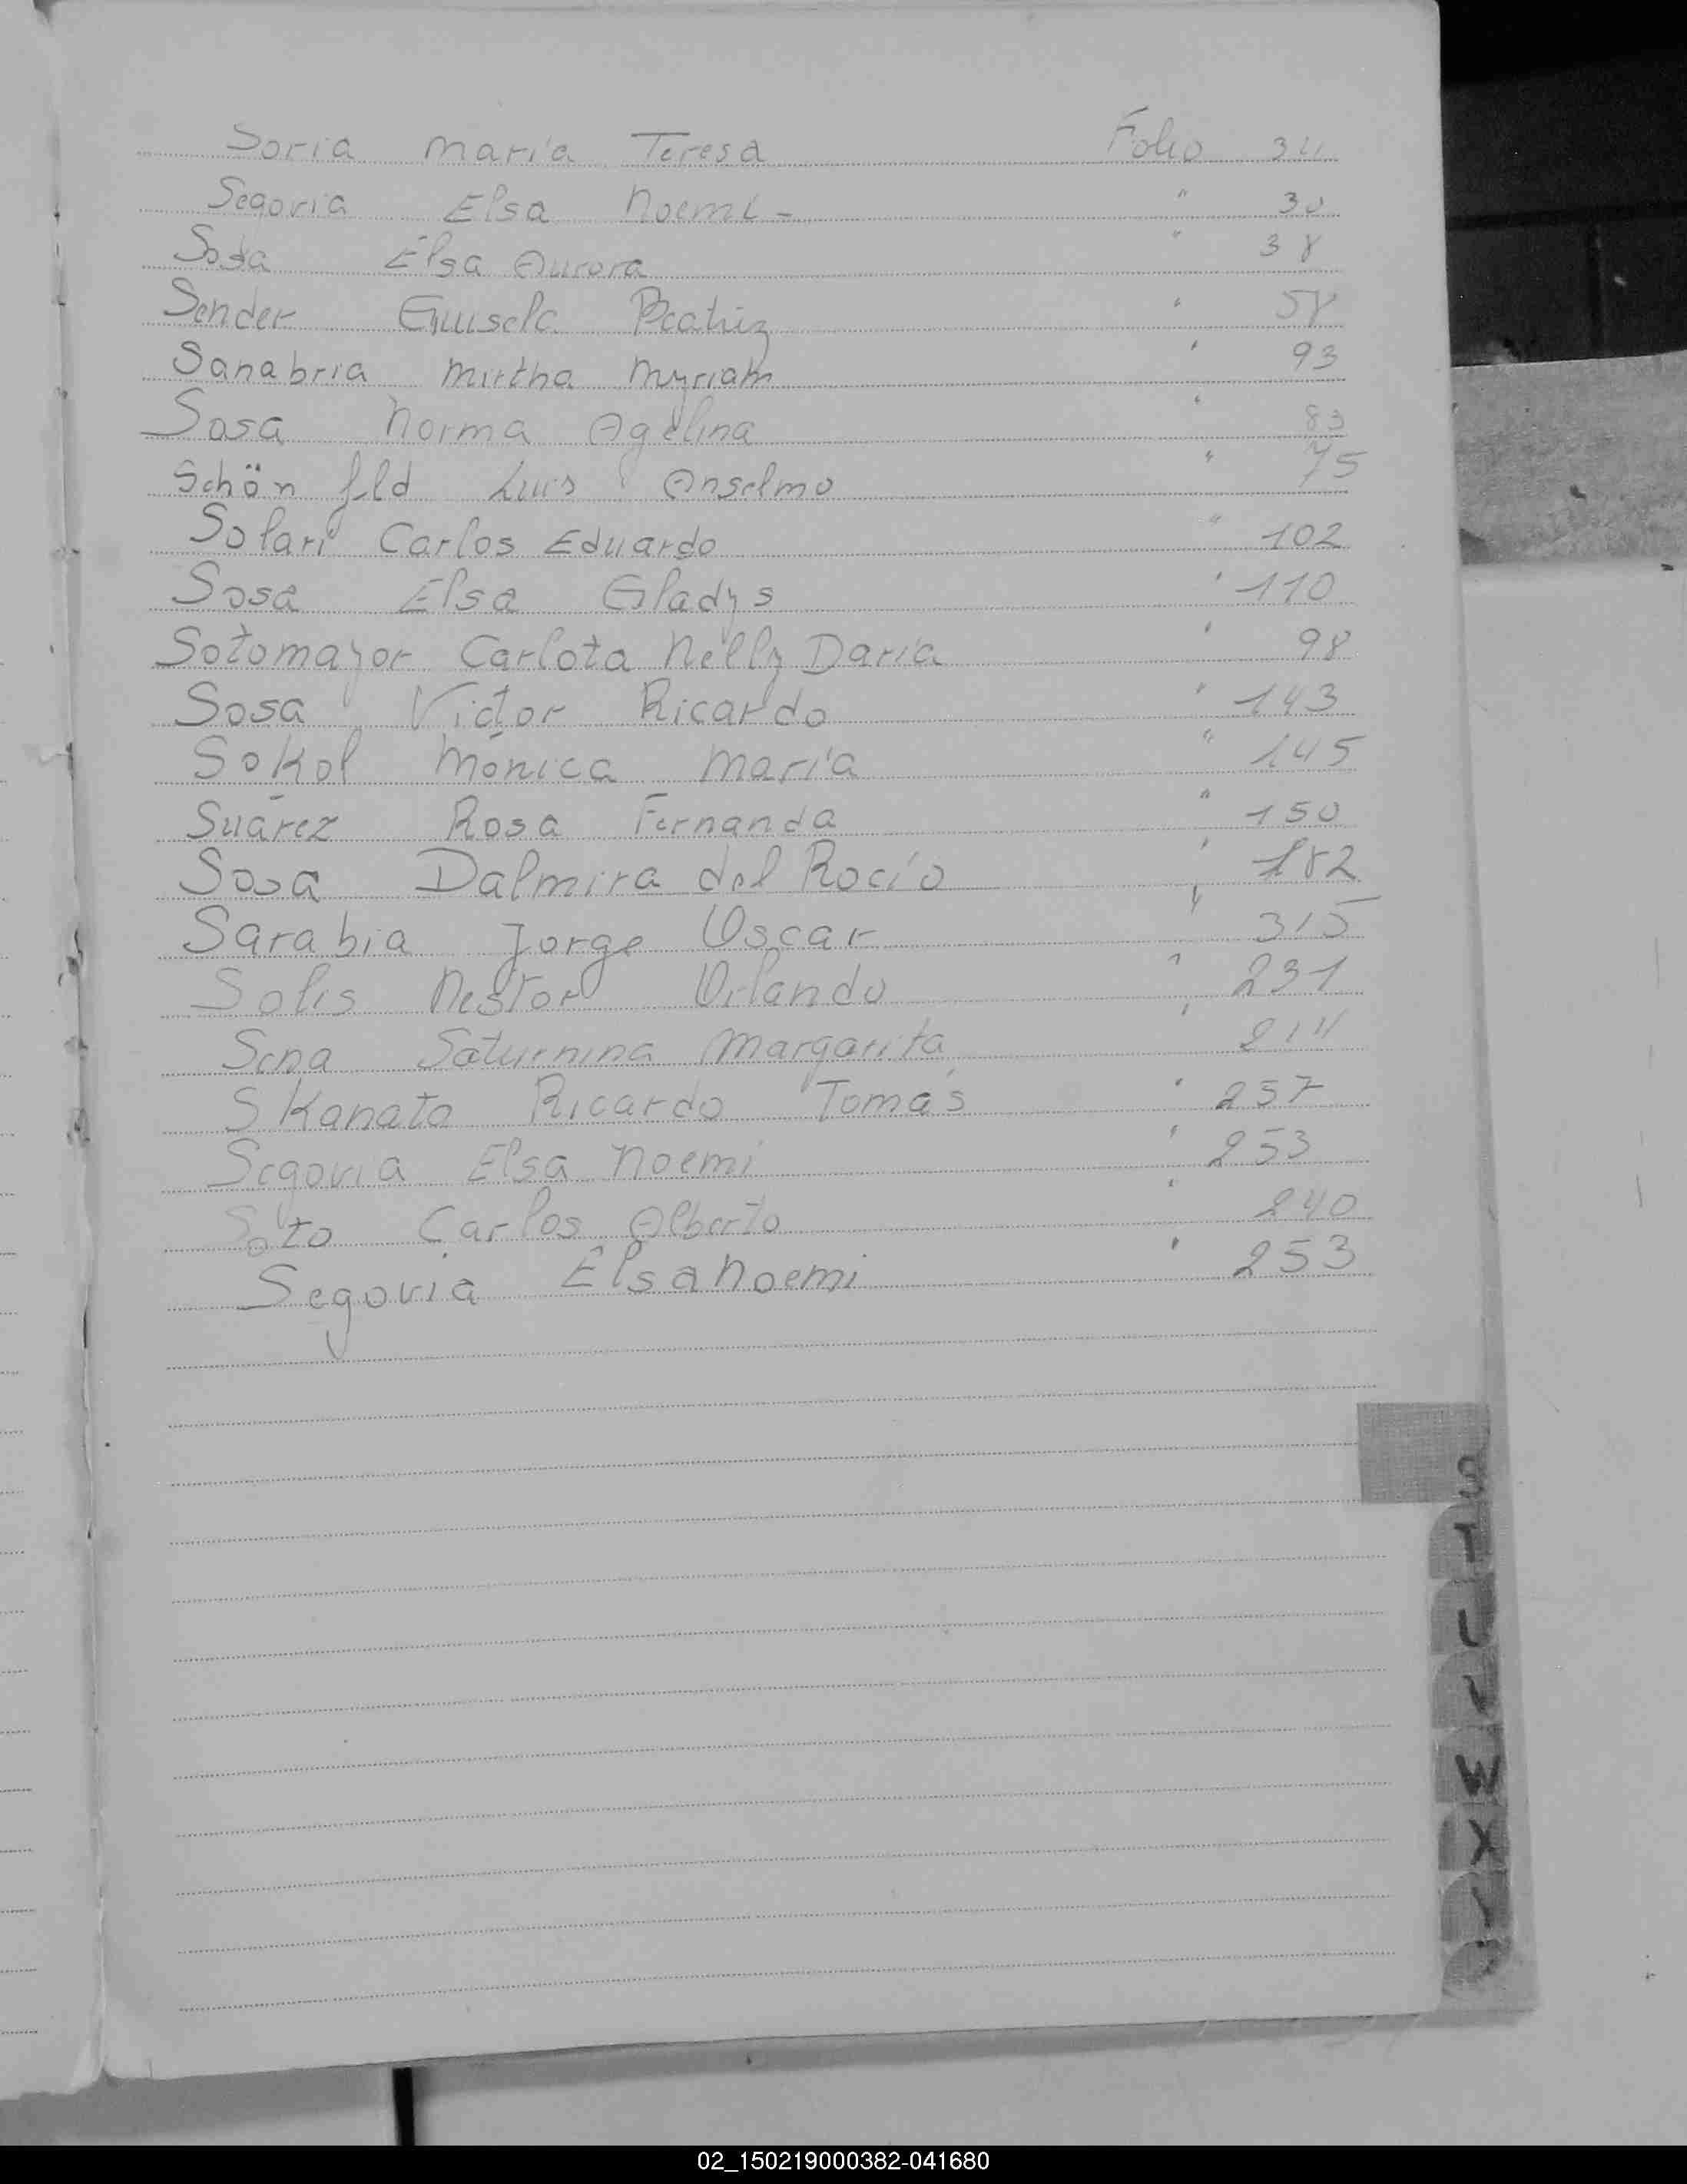 Soria María Teresa Folio 34
Segovia Elsa Noemi - " 30
Sosa Elsa Aurora " 38
Sender Guisela Beatriz " 58
Sanabria Mirtha Myriam " 93
Sosa Norma Agelina " 83
Schön feld Luis Anselmo " 75
Solari Carlos Eduardo " 102
Sosa Elsa Gladys " 110
Sotomayor Carlota Nélly Daría " 98
Sosa Victor Ricardo " 143
Sokol Mónica María " 145
Suárez Rosa Fernanda " 150
Sosa Dalmira del Rocío " 182
Sarabia Jorge Oscar " 315
Solis Nestor Orlando " 231
Sena Saturnina Margarita " 214
SKanata Ricardo Tomás " 257
Segovia Elsa Noemi " 253
Soto Carlos Alberto " 240
Segovia Elsa Noemi " 253
S
T
U
V
W
X
Y
02_150219000382-041680